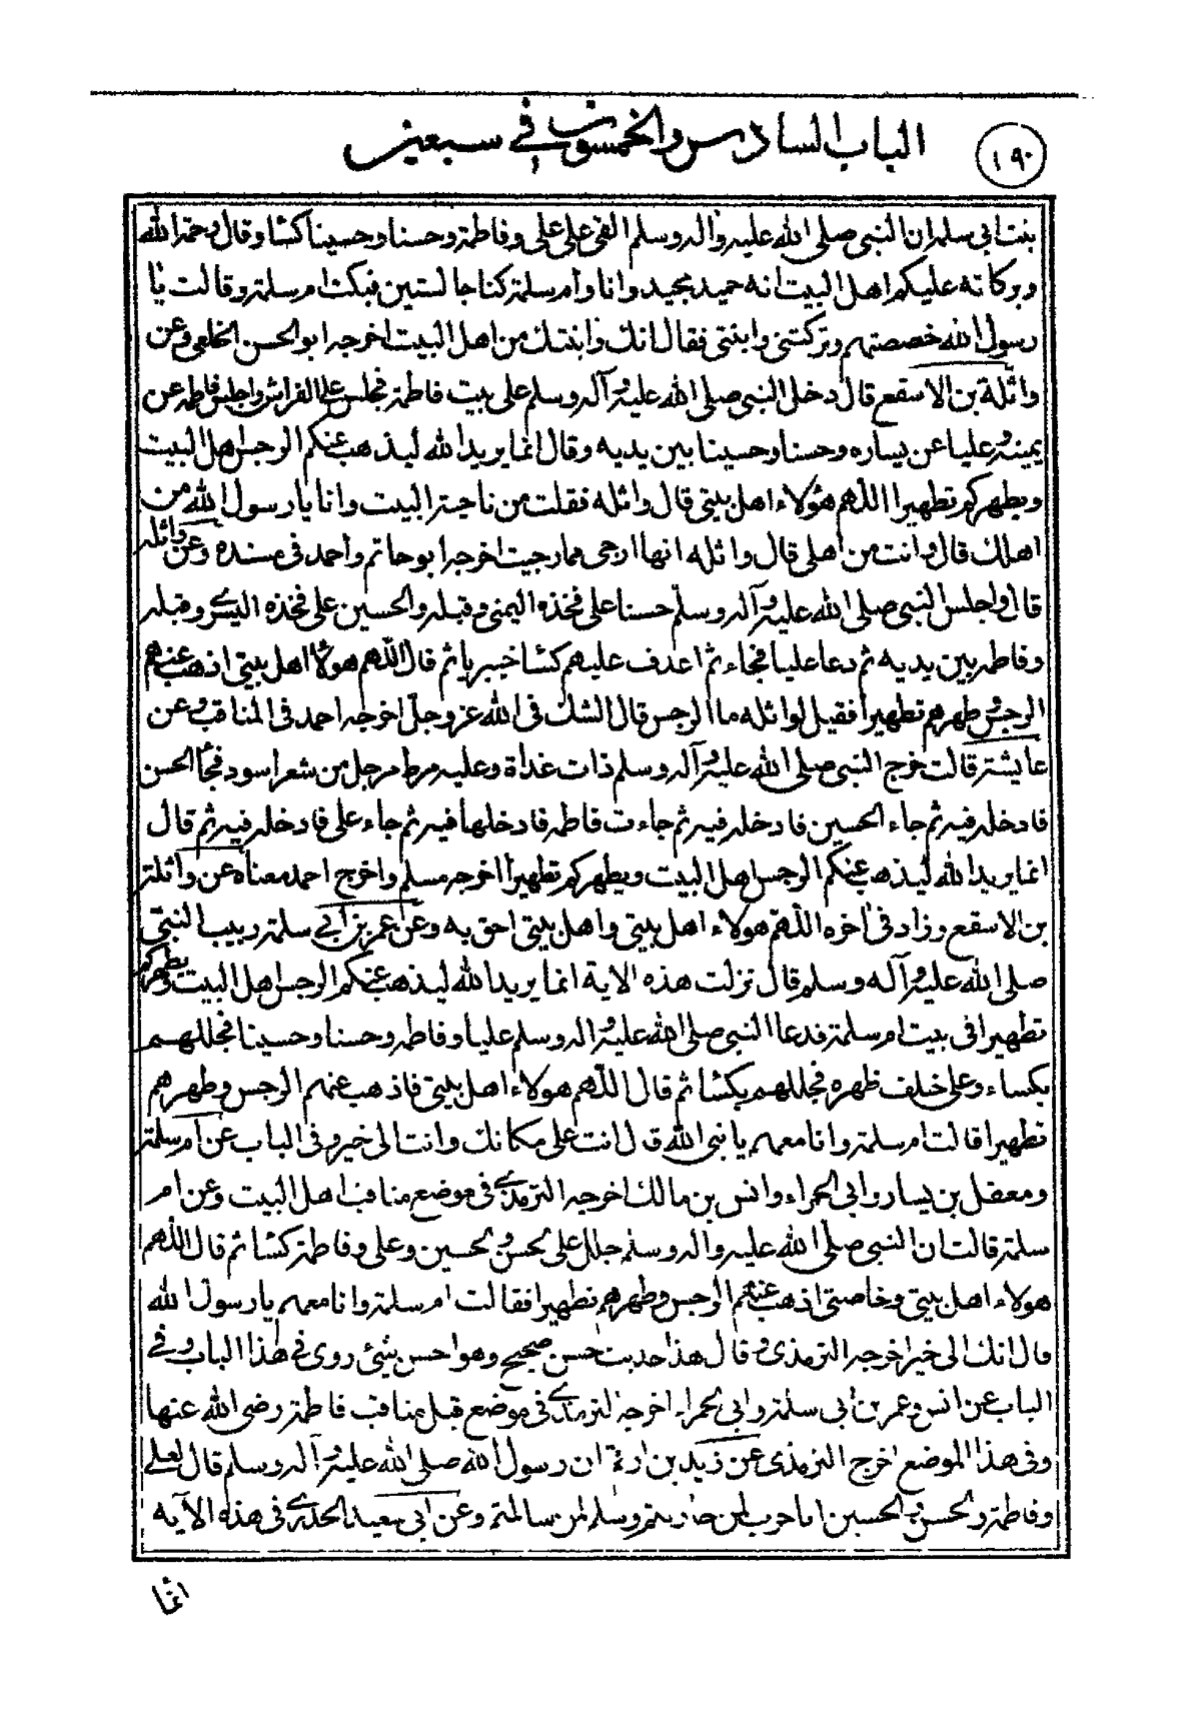 ١٩٠
الباب السادس والخمسون في سبعين
بنت ابي سلمه ان النبي صلى الله عليه واله وسلم القى على علي وفاطمة وحسنا وحسينا كسا وقال رحمة الله
وبركاته عليكم اهل البيت انه حميد مجيد وانا وام سلمة كنا جالستين فبكت ام سلمة وقالت يا
رسول الله خصصتهم وتركتني وابنتي فقال انك وابنتك من اهل البيت اخرجه ابو الحسن الخلعي وعن
واثلة بن الاسقع قال دخل النبي صلى الله عليه وآله وسلم على بيت فاطمة فجلس على الفراش واجلس فاطمه عن
يمينه وعليا عن يساره وحسنا وحسينا بين يديه وقال انما يريد الله ليذهب عنكم الرجس اهل البيت
ويطهركم تطهيرا اللهم هؤلاء اهل بيتي قال واثله فقلت من ناحية البيت وانا يا رسول الله من
اهلك قال وانت من اهلي قال واثله انها ارجى ما رجيت اخرجه ابو حاتم واحمد في مسنده وعن واثله
قال واجلس النبي صلى الله عليه وآله وسلم حسنا على فخذه اليمنى وقبله والحسين على فخذه اليسرى وقبله
وفاطمه بين يديه ثم دعا عليا فجاء ثم اغدف عليهم كسا خيبريا ثم قال اللهم هولاء اهل بيتي اذهب عنهم
الرجس وطهرهم تطهيرا فقيل لواثله ما الرجس قال الشك في الله عز وجل اخرجه احمد في المناقب وعن
عايشة قالت خرج النبي صلى الله عليه وآله وسلم ذات غداة وعليه مرط مرجل من شعر اسود فجأ الحسن
فادخله فيه ثم جاء الحسين فادخله فيه ثم جاءت فاطمه فادخلها فيه ثم جاء علي فادخله فيه ثم قال
انما يريد الله ليذهب عنكم الرجس اهل البيت ويطهركم تطهيرا اخرجه مسلم واخرج احمد معناه عن واثلة
بن الاسقع وزاد في اخره اللهم هولاء اهل بيتي واهل بيتي احق به وعن عمر بن ابي سلمة ربيب النبي
صلى الله عليه وآله وسلم قال نزلت هذه الاية انما يريد الله ليذهب عنكم الرجس اهل البيت ويطهركم
تطهيرا في بيت ام سلمة فدعا النبي صلى الله عليه واله وسلم عليا وفاطمه وحسنا وحسينا فجللهم
بكساء وعلي خلف ظهره فجللهم بكسا ثم قال اللهم هولاء اهل بيتي فاذهب عنهم الرجس وطهرهم
تطهيرا قالت ام سلمة وانا معهم يا نبي الله قال انت على مكانك وانت الى خير وفي الباب عن ام سلمة
ومعقل بن يسار وابي الحمراء وانس بن مالك اخرجه الترمذي في موضع مناقب اهل البيت وعن ام
سلمة قالت ان النبي صلى الله عليه واله وسلم جلل على الحسن والحسين وعلي وفاطمة كسا ثم قال اللهم
هولاء اهل بيتي وخاصتي اذهب عنهم الرجس وطهرهم تطهيرا فقالت ام سلمة وانا معهم يا رسول الله
قال انك الى خير اخرجه الترمذي وقال هذا حديث حسن صحيح وهو احسن شيئ روى في هذا الباب وفي
الباب عن انس وعمر بن ابي سلمة وابي الحمراء اخرجه الترمذي في موضع قبل مناقب فاطمة رضي الله عنها
وفي هذا الموضع اخرج الترمذي عن زيد بن ارقم ان رسول الله صلى الله عليه وآله وسلم قال لعلي
وفاطمة والحسن والحسين انا حرب لمن حاربتم وسلم لمن سالمتم وعن ابي سعيد الخدري في هذه الآيه
انما